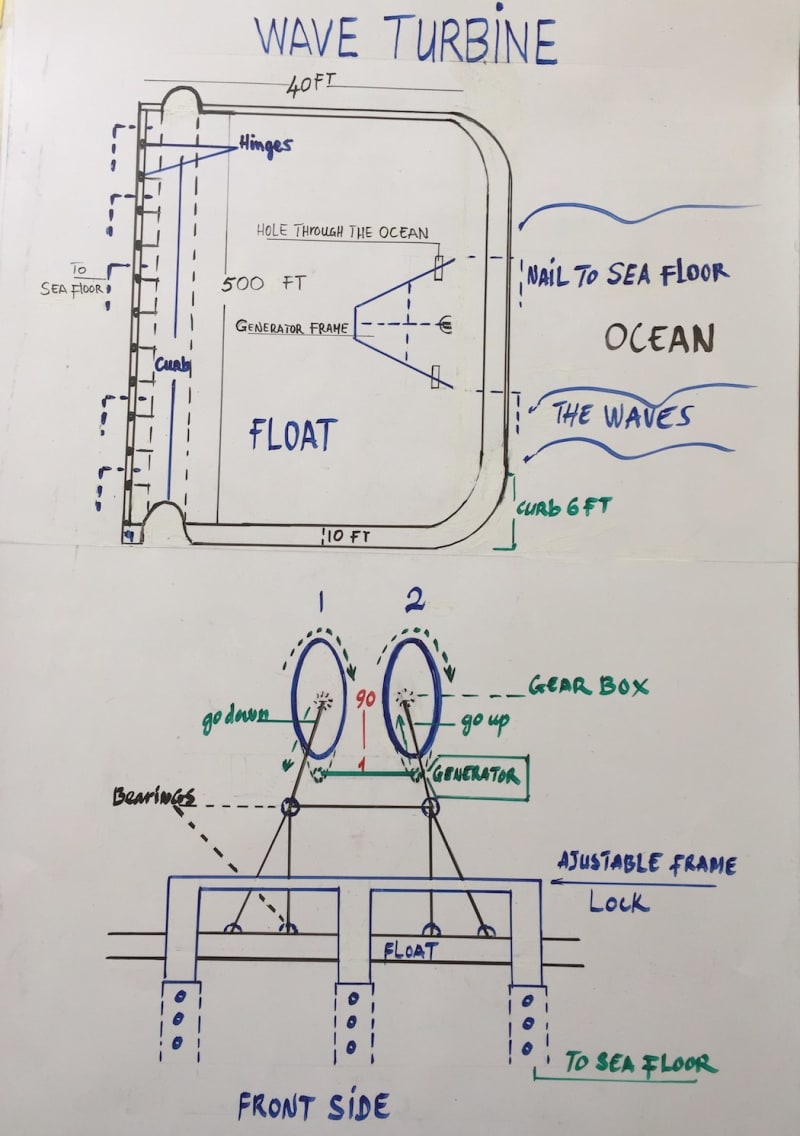 WAVE TURBINE
40FT
Hinges
HOLE THROUGH THE OCEAN
TO
SEA FLOOR
500 FT
NAIL TO SEA FLOOR
GENERATOR FRAME
OCEAN
Curb
FLOAT
THE WAVES
CURB 6 FT
10 FT
1
2
90
GEAR BOX
go down
go up
1
GENERATOR
BEARINGS
AJUSTABLE FRAME
LOCK
FLOAT
TO SEA FLOOR
FRONT SIDE